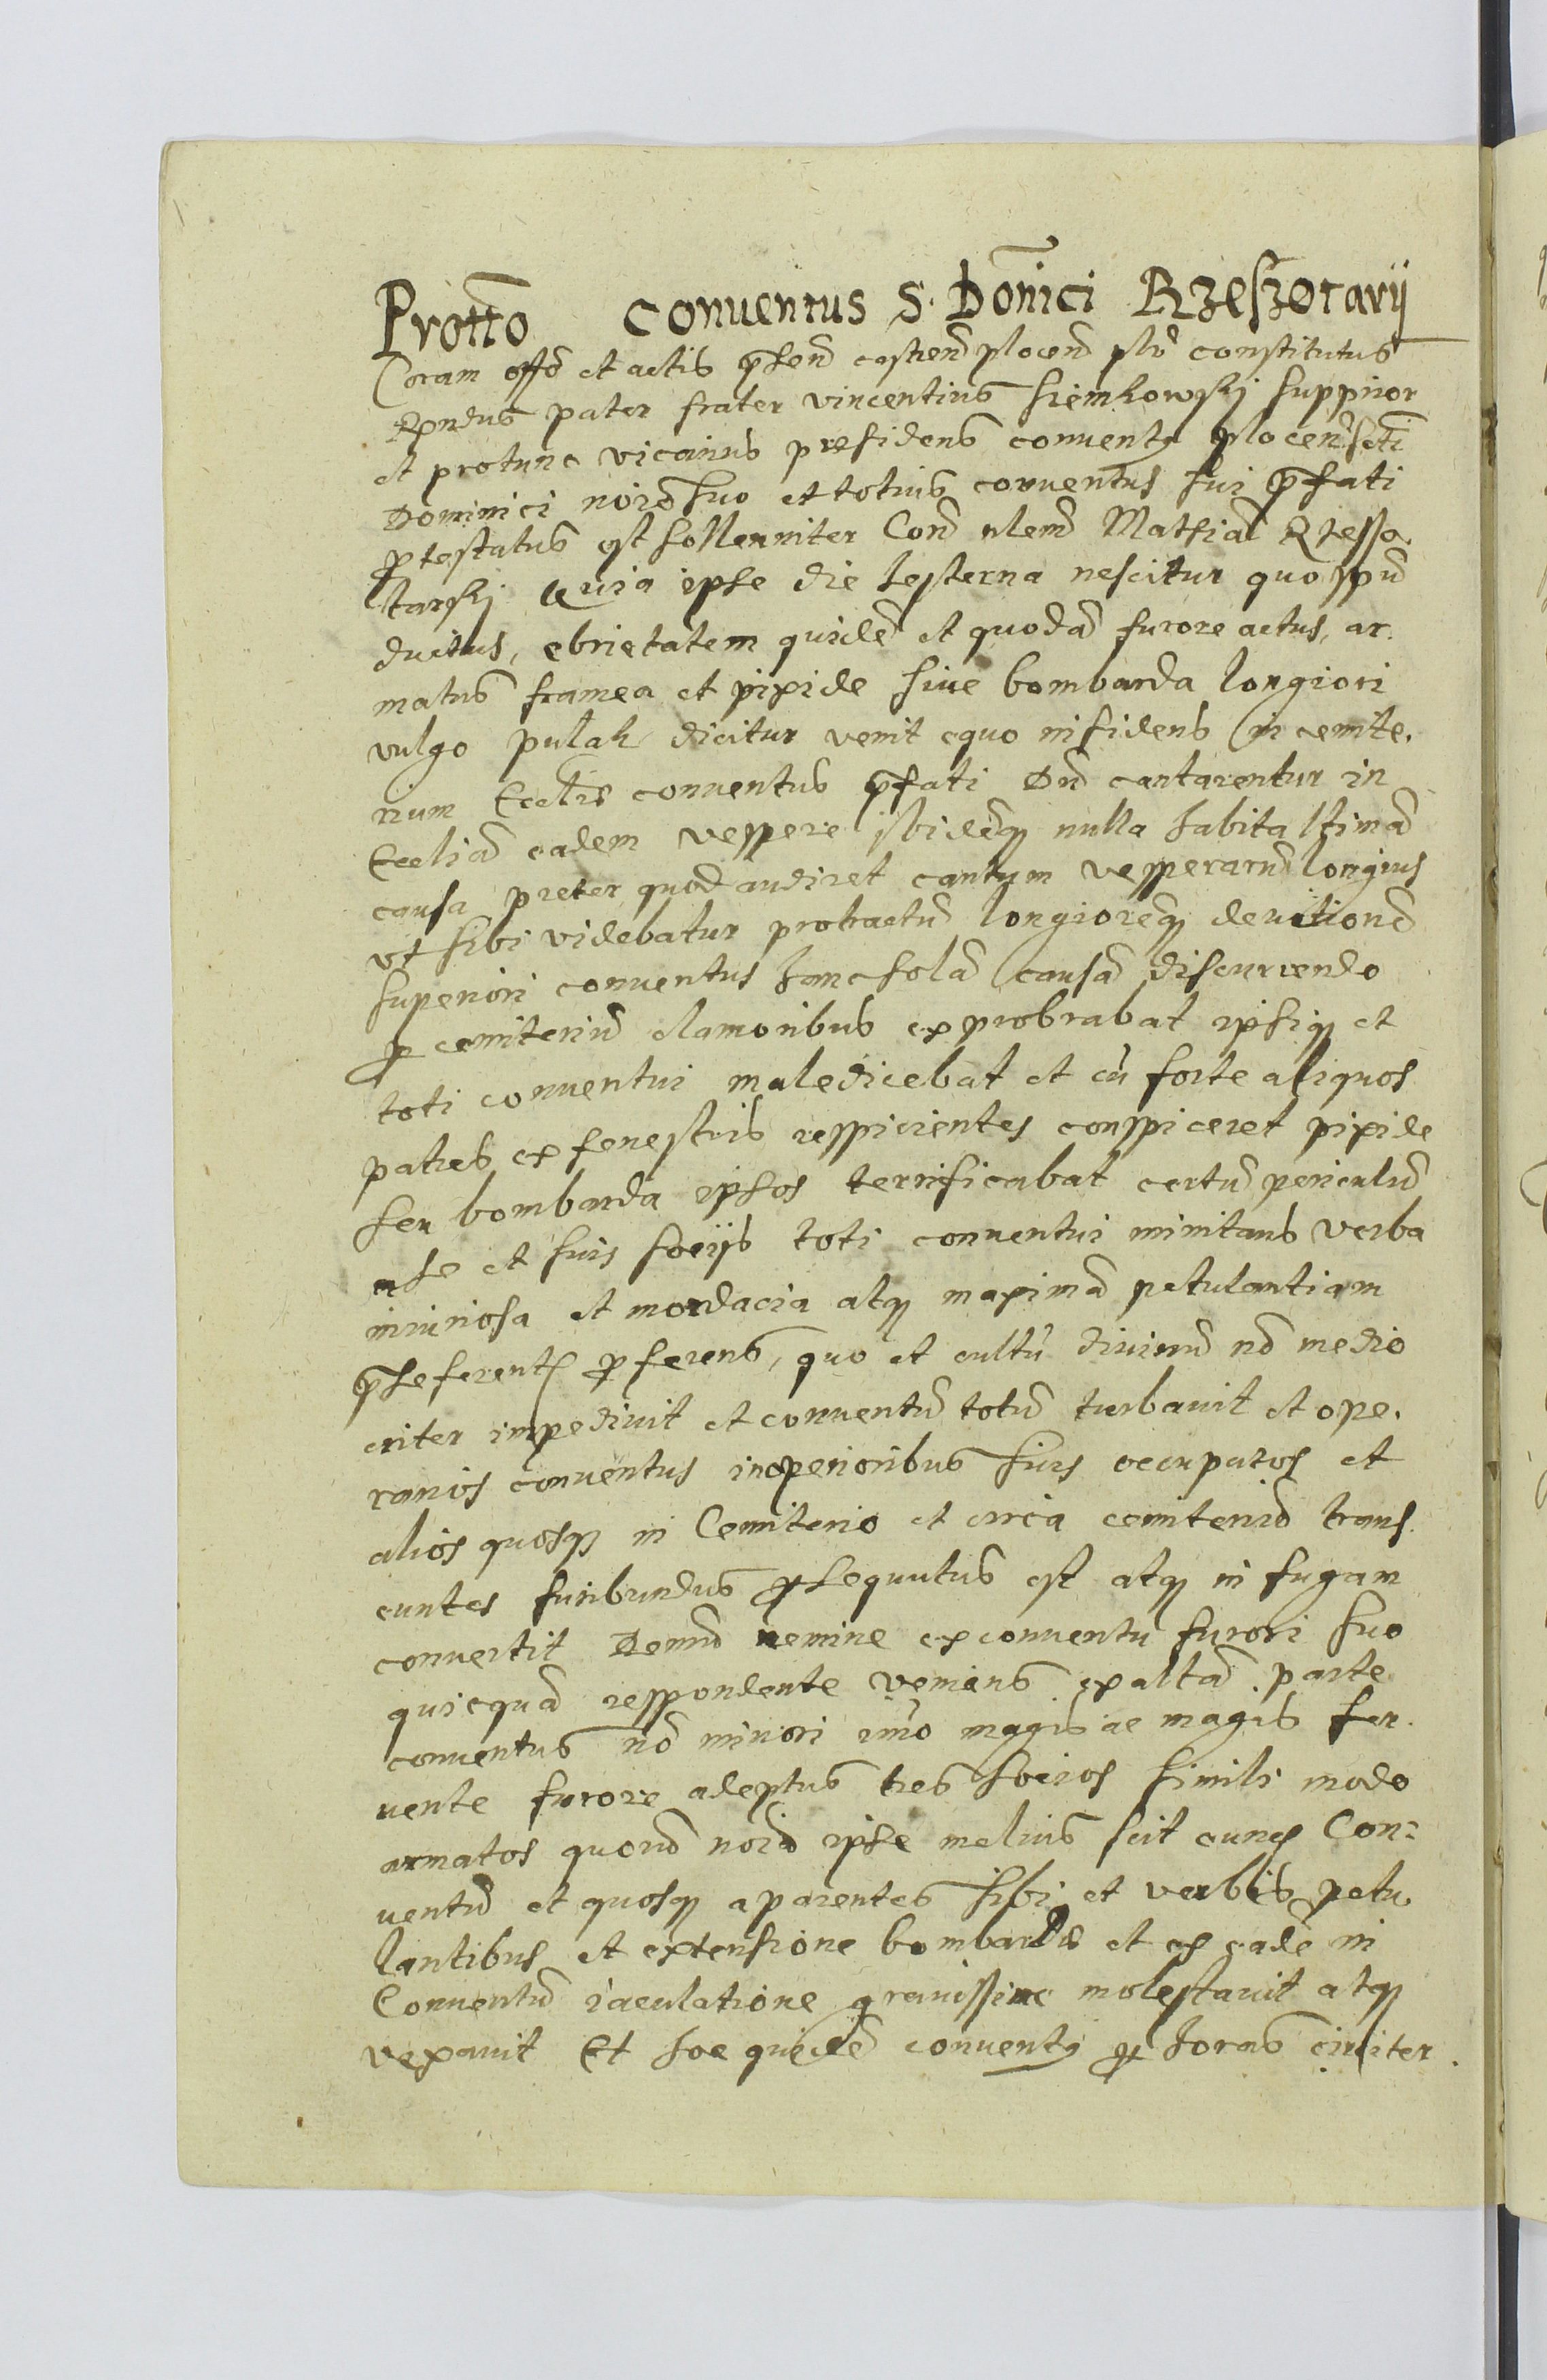 Protto Conuentus S. Domici Rzeszotarÿ
Coram offo et actis pnsen castren plocen plr constitutus
Rndus pater frater vincentius Siemkowskj suppnor
et protunc vicarius presidens conuentus plocen scti
Dominici noie suo et totius conuentus sui pfati
ptestatus est sollenniter Con nlem Mathia Rzesso
tarskj Quia ipse die hesterna nescitur quo spu
ductus, ebrietatem quide et quoda furore actus, ar.
matus framea et pixide siue bombarda longiori
vulgo pulak dicitur venit equo insidens in cemite.
rium Eccliae conuentus pfati Du cantarentur in
Ecclia eadem vespere ibideq nulla habita ltima
causa preter quod audiret cantum vesperaru longius
vt sibi videbatur protractu longioreq deuotione
superiori conuentus hanc sola causa discurrendo
p cemiteriu clamoribus exprobrabat ipsiq et
toti conuentui maledicebat et cu forte aliquos
patres ex fenestris respicientes conspiceret pixide
seu bombarda ipsos terrificabat certu periculu
a se et suis socijs toti conuentui minitans verba
iniuriosa et mordacia atq maxima petulantiam
pseferent pferens, quo et cultu diuinu no medio
criter impediuit et conuentu totu turbauit et ope.
rarios conuentus in operioribus suis occupatos et
alios quosq in Cemiterio et circa cemiteriu trans
euntes furibundus psequutus est atq in fugam
conuertit Demu nemine ex conuentu furori suo
quicqua respondente veniens ex alta parte
conuentus no minori imo magis ac magis fer.
uente furore adeptus tres socios simili modo
armatos quoru noia ipse melius scit eunq Con=
uentu et quosq aparentes sibi et verbis petu
lantibus et extensione bombardae et ex eade in
Conuentu iaculatione grauissime molestauit atq
vexauit Et hoc quide conuentus p horas circiter.